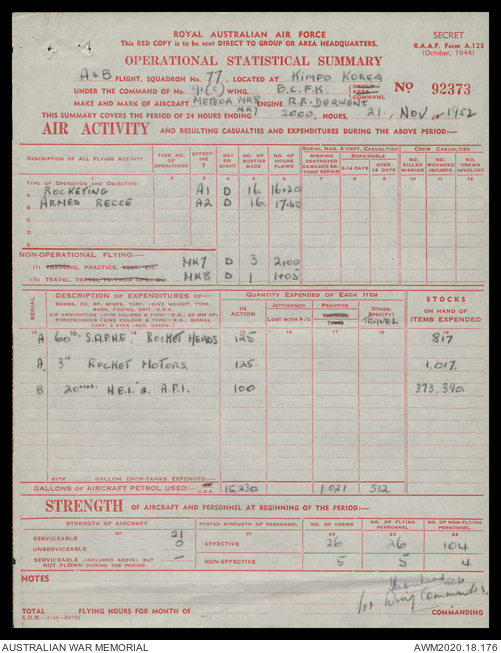 ROYAL AUSTRALIAN AIR FORCE
This RED COPY is to be sent DIRECT TO GROUP OR AREA HEADQUARTERS.
SECRET
R.A.A.F. Form A.123
(October, 1944)
OPERATIONAL STATISTICAL SUMMARY
A & B FLIGHT, SQUADRON No. 77, LOCATED AT KIMPO KOREA
UNDER THE COMMAND OF No. 91(C) WING, B.C.F.K. (GROUP AREA COMMAND) No 92373
MAKE AND MARK OF AIRCRAFT METEOR MK8 MK7 ENGINE R.R. DERWENT
THIS SUMMARY COVERS THE PERIOD OF 24 HOURS ENDING 2000 HOURS, 21 NOV 1952
AIR ACTIVITY AND RESULTING CASUALTIES AND EXPENDITURES DURING THE ABOVE PERIOD:—
DESCRIPTION OF ALL FLYING ACTIVITY
TASK NO. OF OPERATIONS
EFFECTIVE ?
DAY OR NIGHT
NO. OF SORTIES MADE
NO. OF HOURS FLOWN
SERIAL NOS. A-CRFT. CASUALTIES
MISSING DESTROYED DAMAGED BEYOND REPAIR
REPAIRABLE
3-14 DAYS
OVER 14 DAYS
CREW CASUALTIES
NO. KILLED MISSING
NO. WOUNDED INJURED
NO. CREWS INVOLVED
1 2 3 4 5 6 7 8 9 10 11 12
TYPE OF OPERATION AND OBJECTIVE:
A ROCKETING A1 D 16 16.20
B ARMED RECCE A2 D 16
C
D
E
NON-OPERATIONAL FLYING:—
(I) TRAINING, PRACTICE, TEST, ETC. MK7 D 3 2.00
(II) TRAVEL, MK8 D 1 1.05
SERIAL
DESCRIPTION OF EXPENDITURES OF—
BOMBS, DC, RP, MINES, TORP. (GIVE WEIGHT, TYPE, MARK, FUZING, BRIT./U.S.A.
AIR AMMUNITION (GIVE CALIBRE & TYPE—E.G., 20 MM AP)
PYROTECHNICS (GIVE COLOUR & TYPE—E.G., SIGNAL CART, 2 STAR (RED, GREEN.)
QUANTITY EXPENDED OF EACH ITEM
IN ACTION
JETTISONED
LOST WITH A/C
PRACTICE
TRAINING
TESTS
OTHER: SPECIFY:
TRAVEL
STOCKS
ON HAND OF ITEMS EXPENDED
13 14 15 16 17 18 19
A 60 lb. S.A.P.H.E. ROCKET HEADS 125 817
A 3" ROCKET MOTORS 125 1,017
B 20mm. H.E.I. & A.P.I. 100 373,390
GALLON DROP-TANKS EXPENDED—
GALLONS OF AIRCRAFT PETROL USED:— U.S.A. 15,230 1,021 532
STRENGTH OF AIRCRAFT AND PERSONNEL AT BEGINNING OF THE PERIOD:—
STRENGTH OF AIRCRAFT
POSTED STRENGTH OF PERSONNEL
NO. OF CREWS
NO. OF FLYING PERSONNEL
NO. OF NON-FLYING PERSONNEL
20 21 22 23 24
SERVICEABLE 21
UNSERVICEABLE 0
EFFECTIVE 26 26 104
SERVICEABLE (INCLUDED ABOVE) BUT NOT FLOWN DURING THE PERIOD —
NON-EFFECTIVE 5 5 4
NOTES
for Wing Commander
COMMANDING
TOTAL FLYING HOURS FOR MONTH OF
AUSTRALIAN WAR MEMORIAL
AWM2020.18.176